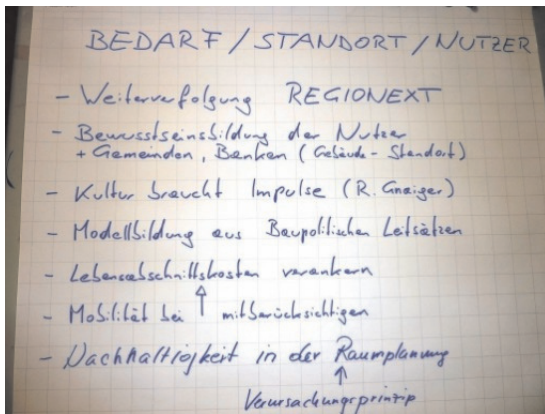 BEDARF / STANDORT / NUTZER
- Weiterverfolgung REGIONEXT
- Bewusstseinsbildung der Nutzer
+ Gemeinden, Banken (Gebäude - Standort)
- Kultur braucht Impulse (R. Gnaiger)
- Modellbildung aus Baupolitischen Leitsätzen
- Lebensabschnittskosten verankern
- Mobilität bei ↑ mitberücksichtigen
- Nachhaltigkeit in der Raumplanung
↑
Verursachungsprinzip